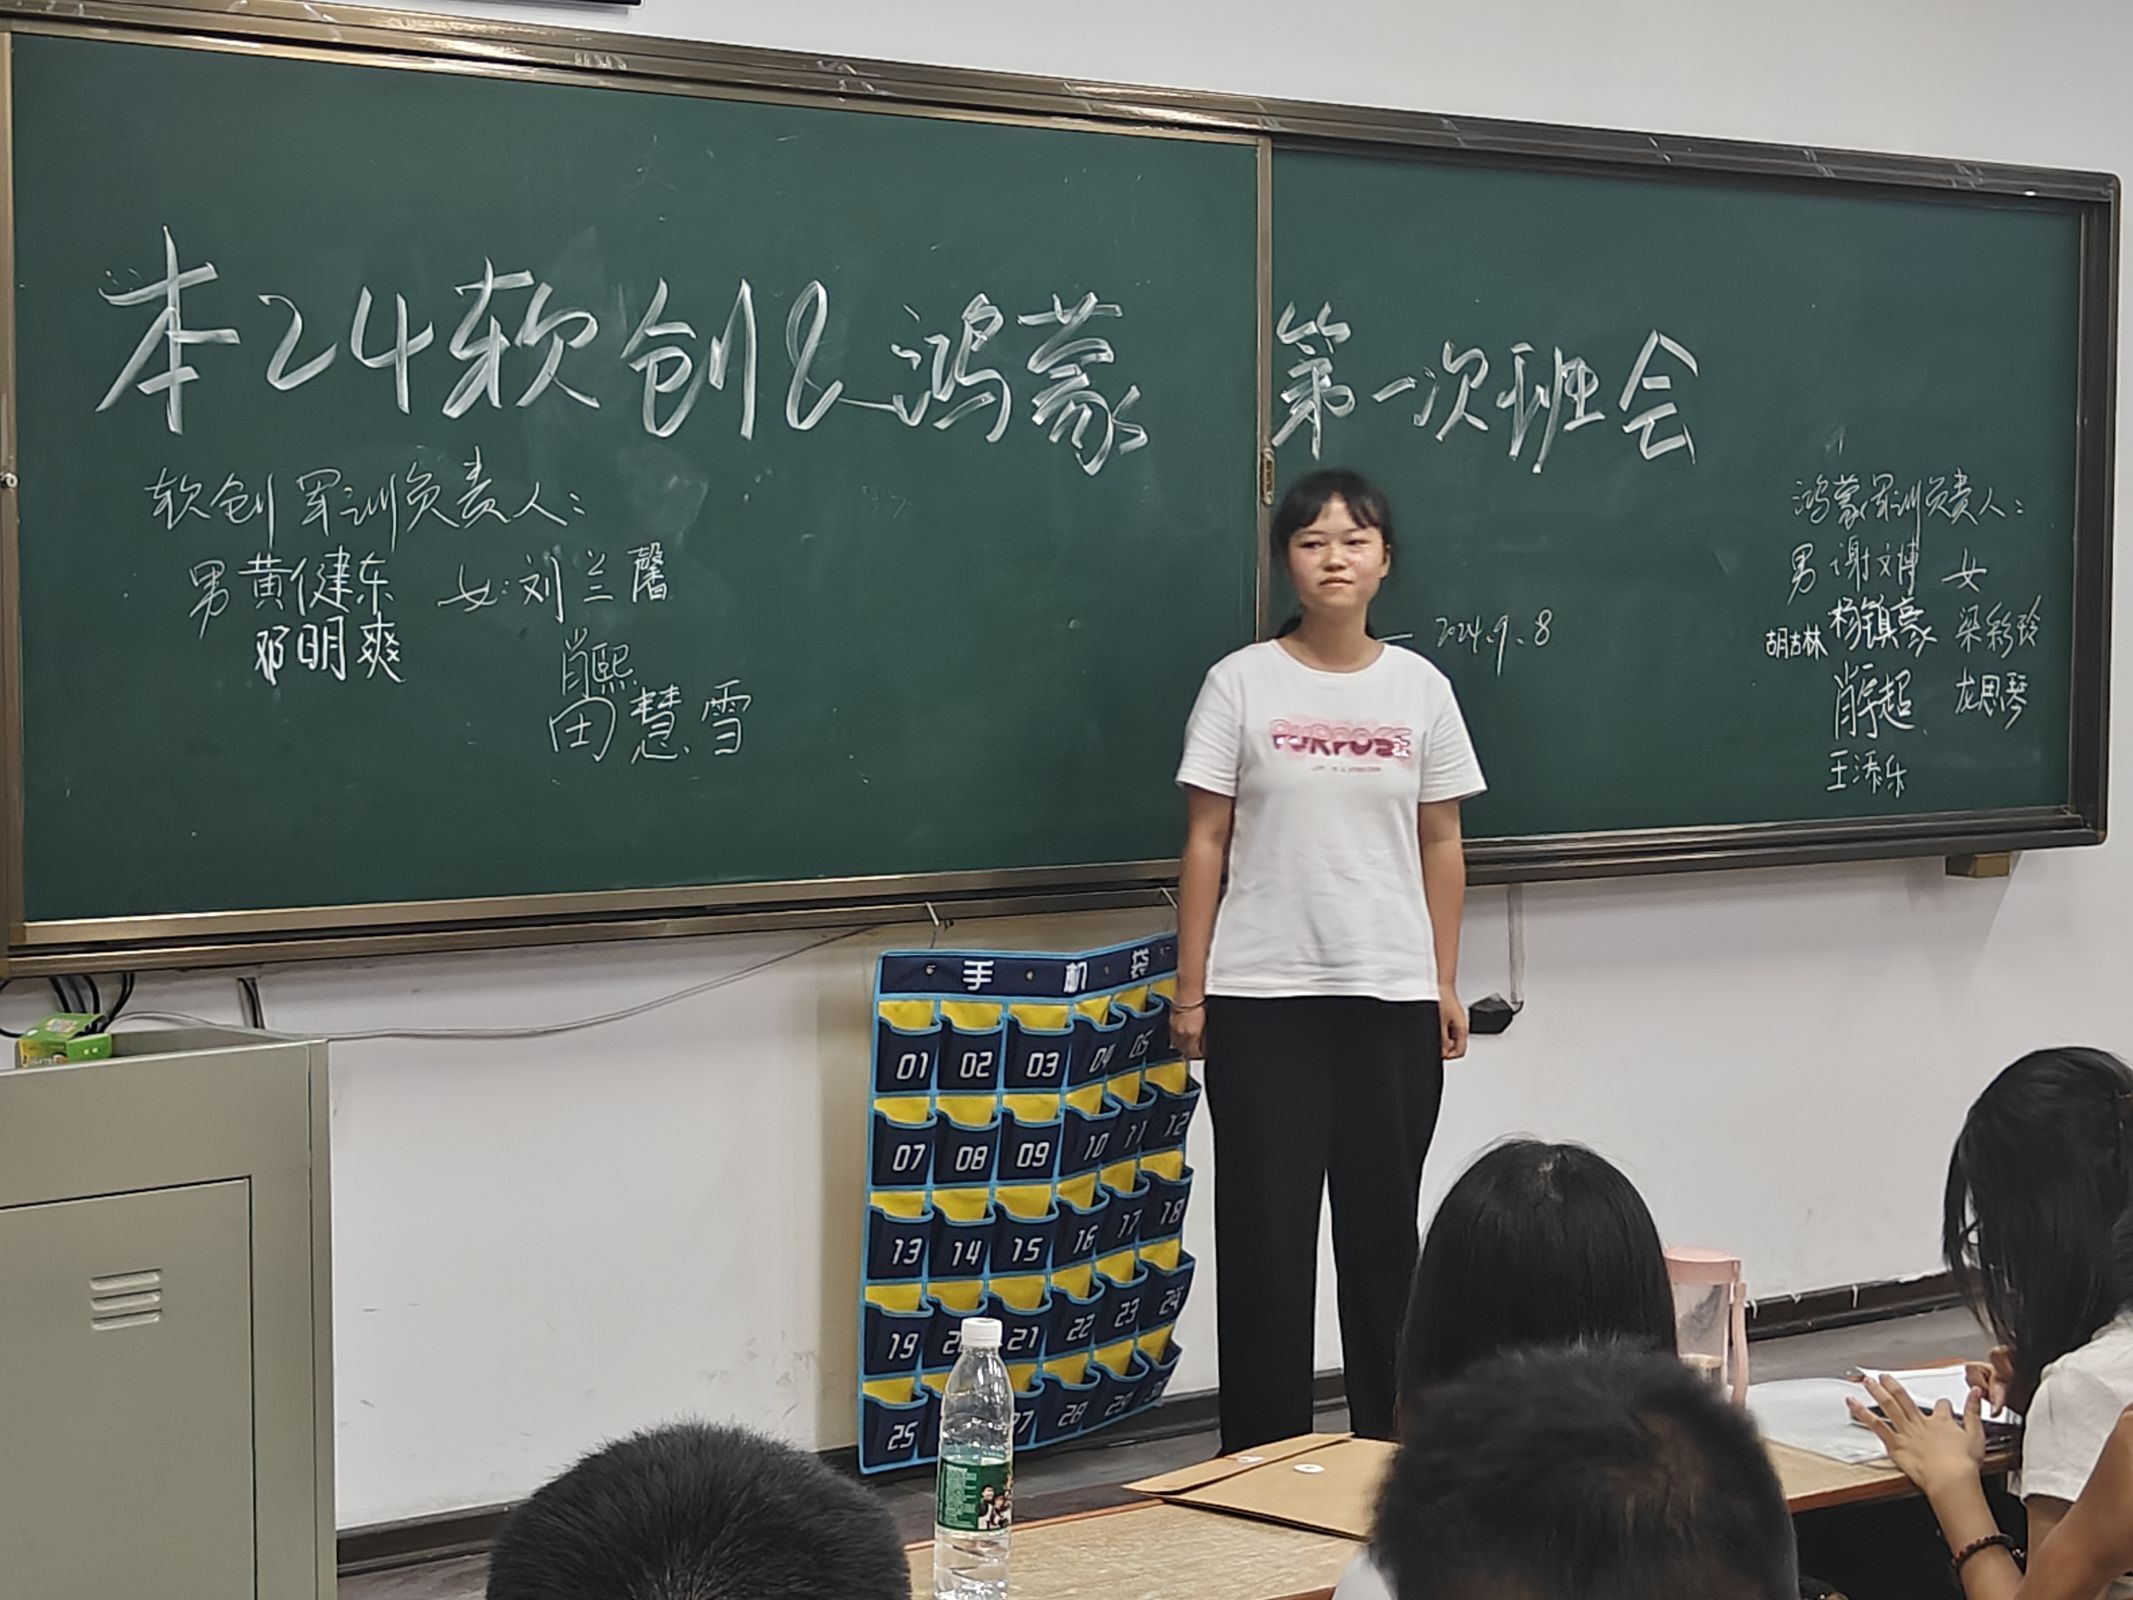 本24软创&鸿蒙 第一次班会
软创军训负责人:
男 黄健东 女:刘兰馨
邓明爽
肖熙
田慧雪
2024.9.8
鸿蒙军训负责人:
男 谢文博 女
胡古林 杨镇豪 梁彩玲
肖宇超 龙思琴
王添乐
PURPOSE
手机袋
01 02 03 04 05
07 08 09 10 11 12
13 14 15 16 17 18
19 21 22 23 24
25 27 28 29